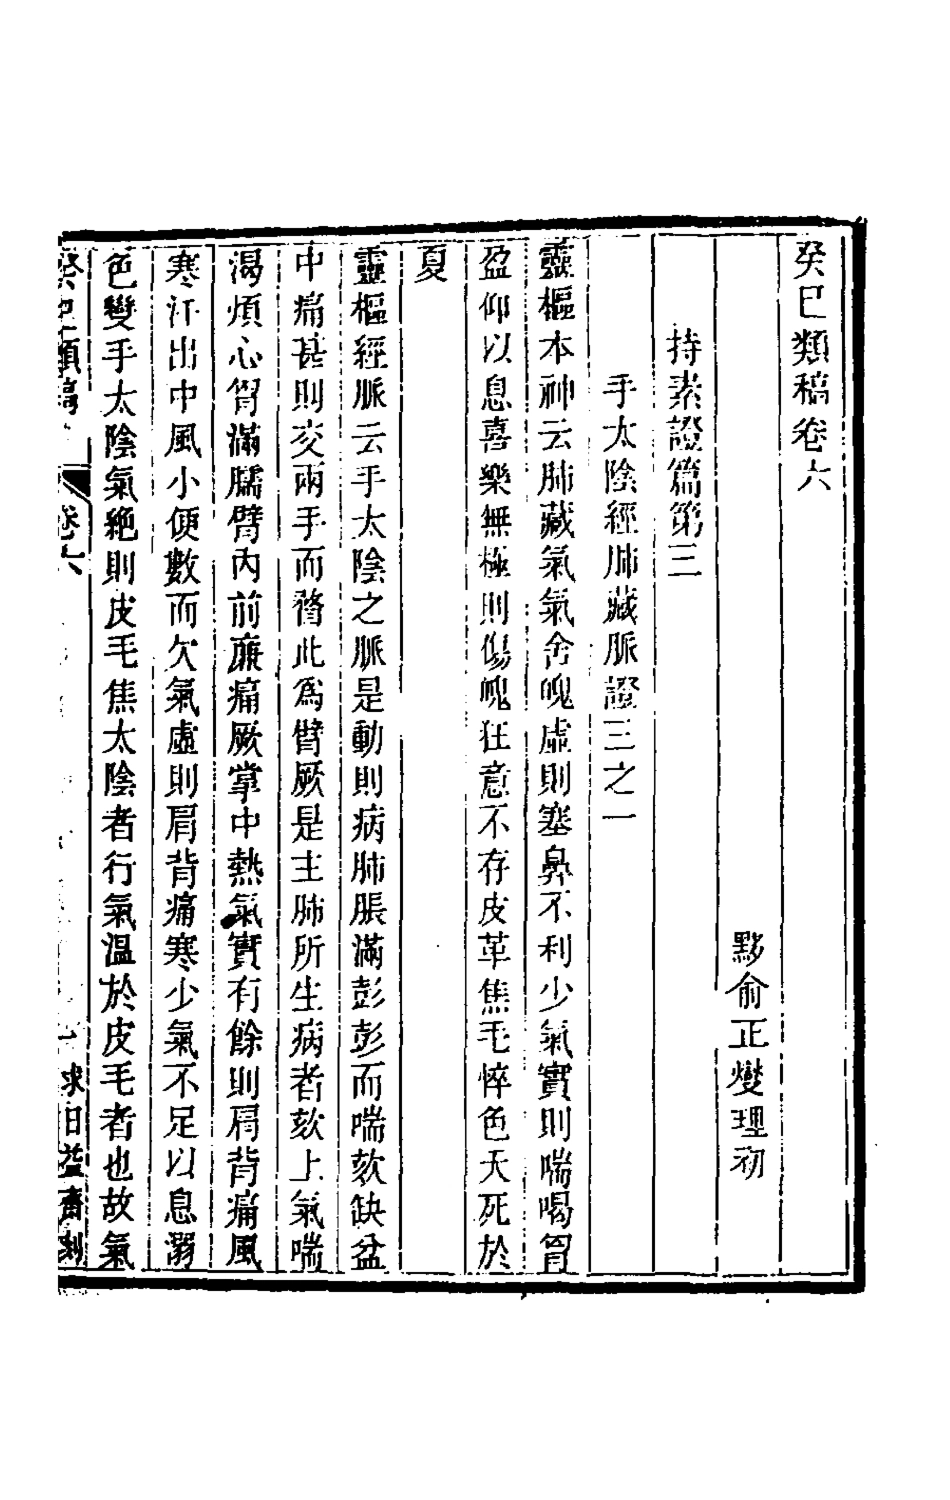 癸巳類稿卷六
黟俞正燮理初
持素證篇第三
手太陰經肺藏脈證三之一
靈樞本神云肺藏氣氣舍魄虛則塞鼻不利少氣實則喘喝胷
盈仰以息喜樂無極則傷魄狂意不存皮革焦毛悴色夭死於
夏
靈樞經脈云手太陰之脈是動則病肺脹滿彭彭而喘欬缺盆
中痛甚則交兩手而瞀此爲臂厥是主肺所生病者欬上氣喘
渴煩心胷滿臑臂內前廉痛厥掌中熱氣實有餘則肩背痛風
寒汗出中風小便數而欠氣虛則肩背痛寒少氣不足以息溺
色變手太陰氣絶則皮毛焦太陰者行氣溫於皮毛者也故氣
癸巳類稿 卷六 一 求日益齋刻